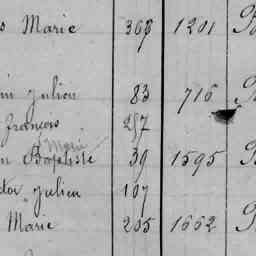 s Marie 368 1201
in Julien 83 716
François 257
Marie
n Baptiste 39 1595
tor Julien 107
Marie 205 1662